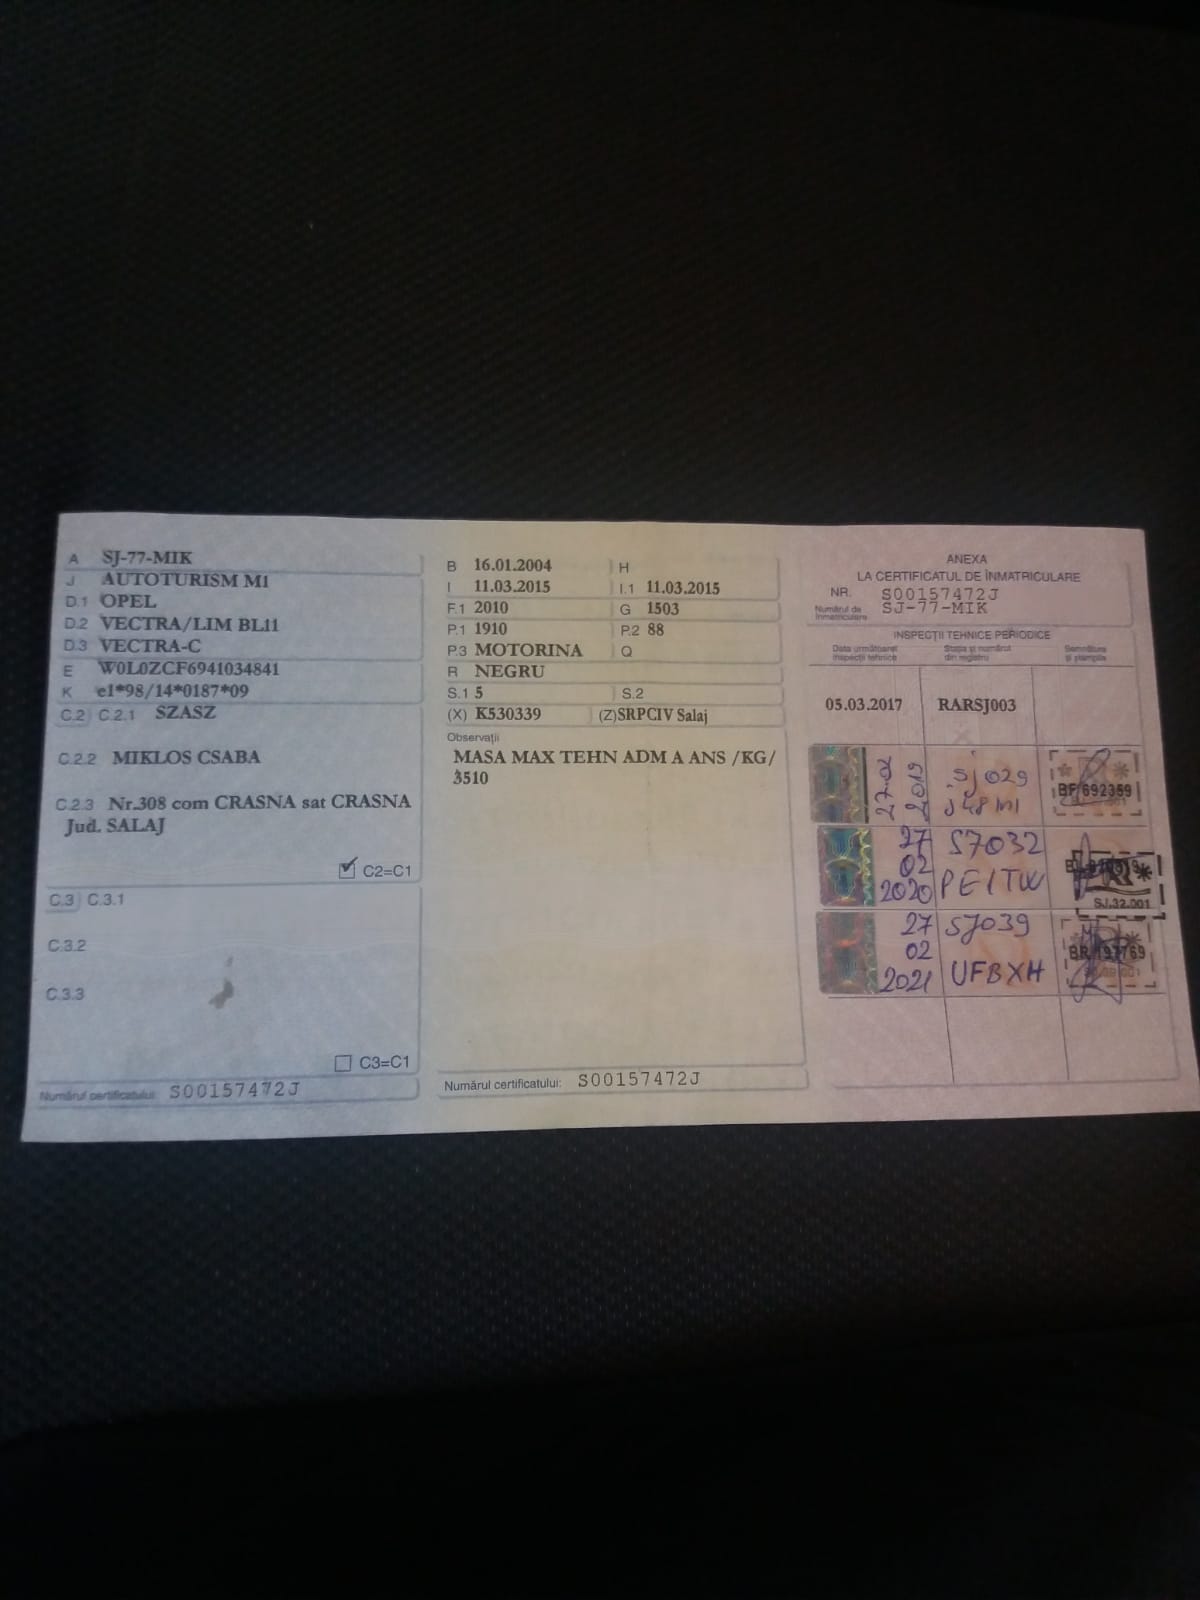 A SJ-77-MIK
J AUTOTURISM M1
D.1 OPEL
D.2 VECTRA/LIM BL11
D.3 VECTRA-C
E W0L0ZCF6941034841
K e1*98/14*0187*09
C.2 C.2.1 SZASZ
C.2.2 MIKLOS CSABA
C.2.3 Nr.308 com CRASNA sat CRASNA
Jud. SALAJ
C2=C1
C.3 C.3.1
C.3.2
C.3.3
C3=C1
Numărul certificatului: S00157472J
B 16.01.2004 H
I 11.03.2015 I.1 11.03.2015
F.1 2010 G 1503
P.1 1910 P.2 88
P.3 MOTORINA Q
R NEGRU
S.1 5 S.2
(X) K530339 (Z) SRPCIV Salaj
Observații
MASA MAX TEHN ADM A ANS /KG/
3510
Numărul certificatului: S00157472J
ANEXA
LA CERTIFICATUL DE ÎNMATRICULARE
NR. S00157472J
Numărul de înmatriculare SJ-77-MIK
INSPECȚII TEHNICE PERIODICE
Data următoarei inspecții tehnice
Stația și numărul din registru
Semnătura și ștampila
05.03.2017 RARSJ003
27.02 2019
SJ029
BF 692359
27 02 2020
SJ032
PEITW
SJ.32.001
27 02 2021
SJ039
UFBXH
BR 197769